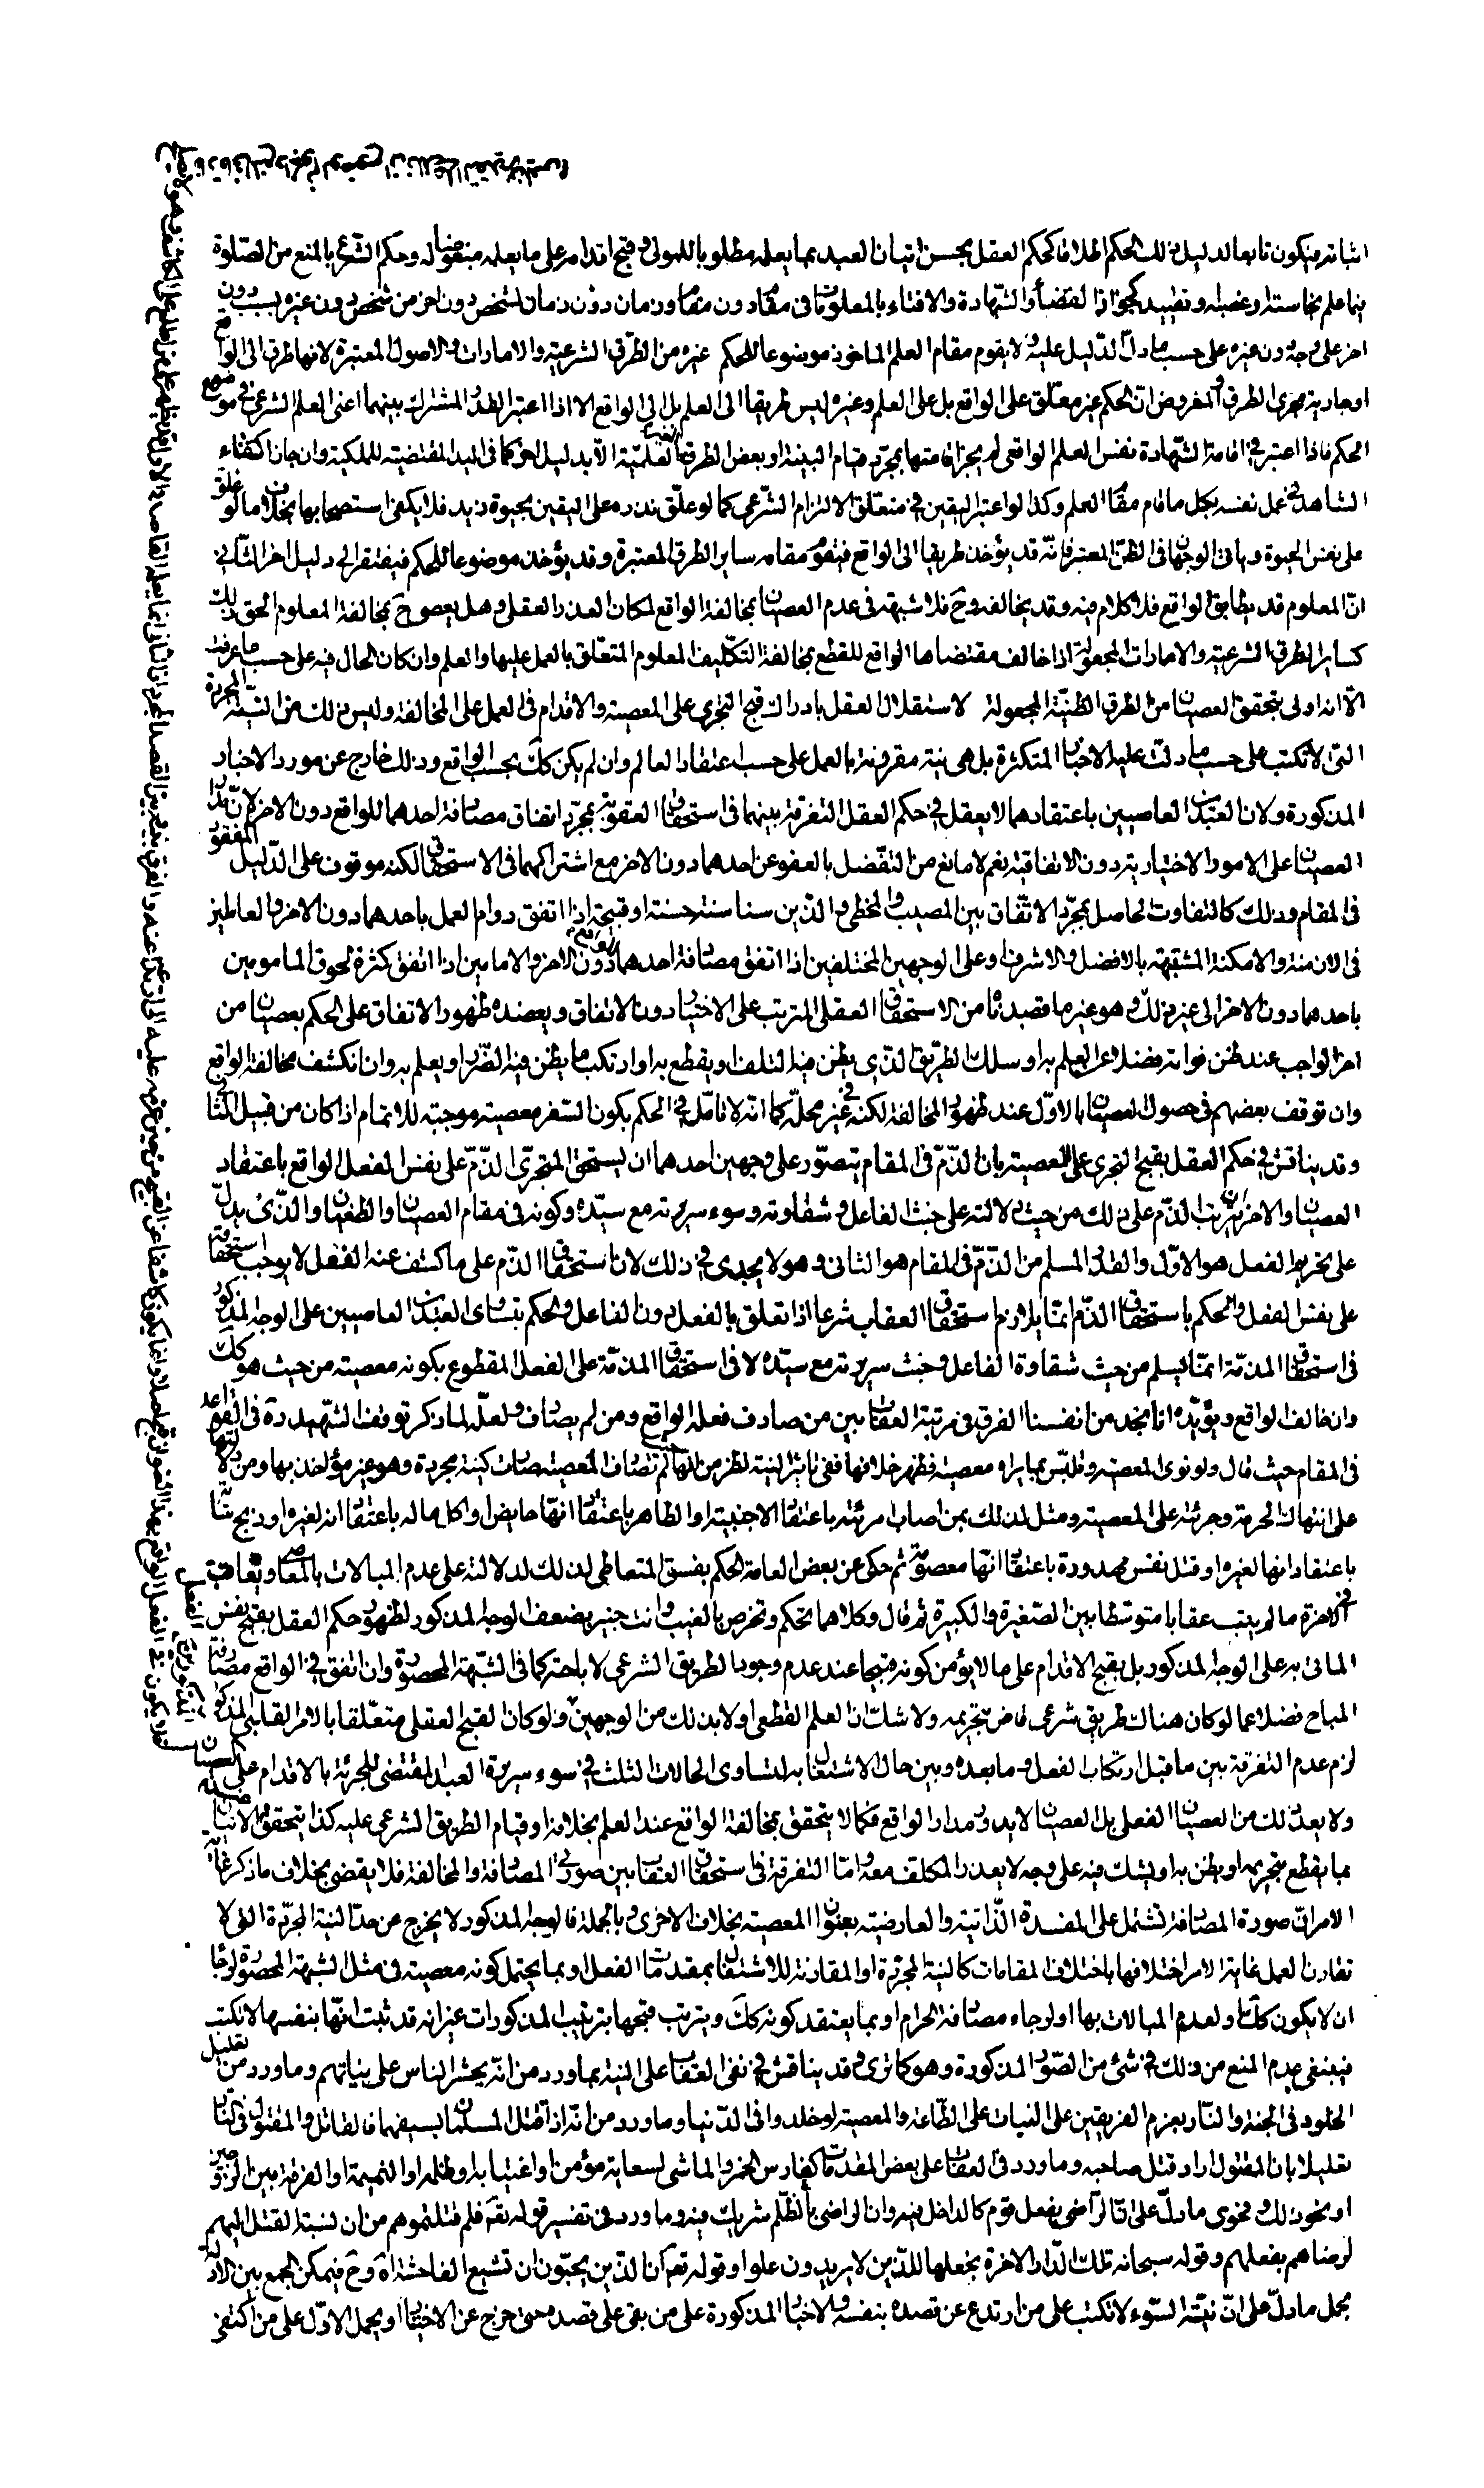 اثباته فيكون تابعا لدليل ذلك الحكم اطلاقا كحكم العقل بحسن اتيان العبد بما يعلمه مطلوبا للمولى و قبح اقدامه على ما يعلمه مبغوضا له وحكم الشرع بالمنع من الصلوة
فيما علم نجاسته او غصبه و تقييد كجواز القضاء والشهادة والافتاء بالمعلومات فى مقام دون مقام و زمان دون زمان لشخص دون اخر من شخص دون غيره بسبب دون
اخر على وجه دون غيره على حسب ما دل الدليل عليه و لا يقوم مقام العلم الماخوذ موضوعا للحكم غيره من الطرق الشرعية والامارات والاصول المعتبرة لانها طرق الى الواقع
او جارية مجرى الطرق و المفروض ان الحكم غير معلق على الواقع بل على العلم وغيره ليس طريقا الى العلم بل الى الواقع الا اذا اعتبر القدر المشترك بينهما اعنى العلم الشرعى فى موضوع
الحكم فاذا اعتبر فى اقامة الشهادة نفس العلم الواقعى لم يجز اقامتها بمجرد قيام البينة او بعض الطرق العلمية الا بدليل اخر كما فى اليد المقتضية للملكية وان جاز اكتفاء
الشاهد فى عمل نفسه بكل ما قام مقام العلم وكذا لو اعتبر اليقين فى متعلق الالتزام الشرعى كما لو علق نذره على اليقين بحيوة زيد فلا يكفى استصحابها بخلاف ما لو علق
على نفس الحيوة و ياتى الوجهان فى الظن المعتبر فانه قد يؤخذ طريقا الى الواقع فتقوم مقامه ساير الطرق المعتبرة وقد يؤخذ موضوعا للحكم فيفتقر الى دليل اخر الثانى
ان المعلوم قد يطابق الواقع فلا كلام فيه وقد يخالفه وح فلا شبهة فى عدم العصيان بمخالفة الواقع لمكان العذر العقلى وهل يعصى ح بمخالفة المعلوم الحق ذلك
كساير الطرق الشرعية والامارات المجعولة اذا خالف مقتضاها الواقع للقطع بمخالفة التكليف المعلوم المتعلق بالعمل عليها والعلم وان كان الحال فيه على حسب ما عرفت
الا انه اولى بتحقق العصيان من الطرق الظنية المجعولة لاستقلال العقل بادراك قبح التجرى على المعصية والاقدام فى العمل على المخالفة وليس ذلك من النية المجردة
التى لا تكتب على حسب ما دلت عليه الاخبار المتكثرة بل هى نية مقرونة بالعمل على حسب اعتقاد العالم وان لم يكن كك بحسب الواقع وذلك خارج عن مورد الاخبار
المذكورة ولان العبدين العاصيين باعتقادهما لا يعقل فى حكم العقل التفرقة بينهما فى استحقاق العقوبة بمجرد اتفاق مصادفة احدهما للواقع دون الاخر لان مدار
العصيان على الامور الاختيارية دون الاتفاقية نعم لا مانع من التفضل بالعفو عن احدهما دون الاخر مع اشتراكهما فى الاستحقاق لكنه موقوف على الدليل المفقود
فى المقام وذلك كالتفاوت الحاصل بمجرد الاتفاق بين المصيب والمخطى و الذين سنا سنة حسنة او قبيحة اذا اتفق دوام العمل باحدهما دون الاخر والعاملين
فى الازمنة والامكنة المشتبهة بالافضل والاشرف او على الوجهين المختلفين اذا اتفق مصادفة احدهما للواقع دون الاخر والامامين اذا اتفق كثرة لحوق المامومين
باحدهما دون الاخر الى غير ذلك و هو غير ما قصدناه من الاستحقاق العقلى المترتب على الاختيار دون الاتفاق و يعضده ظهور الاتفاق على الحكم بعصيان من
اخر الواجب عند ظن فواته فضلا عن العلم به او سلك الطريق الذى يظن فيه التلف او يقطع به او ارتكب ما يظن فيه الضرر او يعلم به وان انكشف مخالفة الواقع
وان توقف بعضهم فى حصول العصيان بالاول عند ظهور المخالفة لكنه فى غير محله كما انه لا تامل فى الحكم بكون السفر معصية موجبة للاتمام اذا كان من قبيل الثانى
وقد يناقش فى حكم العقل بقبح التجرى على المعصية بان الذم فى المقام يتصور على وجهين احدهما ان يستحق المتجرى الذم على نفس الفعل الواقع باعتقاد
العصيان والاخر ان يترتب الذم على ذلك من حيث دلالته على خبث الفاعل و شقاوته و سوء سريرته مع سيده و كونه فى مقام العصيان والطغيان والذى يدل
على تحريم الفعل هو الاول و القدر المسلم من الذم فى المقام هو الثانى و هو لا يجدى فى ذلك لان استحقاق الذم على ما كشف عنه الفعل لا يوجب استحقاقه
على نفس الفعل والحكم باستحقاق الذم انما يلازم استحقاق العقاب شرعا اذا تعلق بالفعل دون الفاعل والحكم بتساوى العبدين العاصيين على الوجه المذكور
فى استحقاق المذمة انما يسلم من حيث شقاوة الفاعل و خبث سريرته مع سيده لا فى استحقاق المذمة على الفعل المقطوع بكونه معصية من حيث هو كك
وان خالف الواقع و يؤيده انا نجد من انفسنا الفرق فى مرتبة العقاب بين من صادف فعله الواقع و من لم يصادف و لعله لما ذكر توقف الشهيد ره فى القواعد
فى المقام حيث قال و لو نوى المعصية و تلبس بما يراه معصية فظهر خلافها ففى تاثير النية نظر من انها لم تصادف المعصية صارت كنية مجردة وهو غير مؤاخذ بها ومن دلالتها
على انتهاك الحرمة و جرئته على المعصية و مثل لذلك بمن اصاب امرئته باعتقاد الاجنبية او الطاهر باعتقاد انها حايض او اكل ماله باعتقاد انه لغيره او ذبح شاة
باعتقاد انها لغيره او قتل نفس مهدورة باعتقاد انها معصومة ثم حكى عن بعض العامة الحكم بفسق المتعاطى لذلك لدلالته على عدم المبالات بالمعاصى و يعاقب
فى الاخرة ما لم يتب عقابا متوسطا بين الصغيرة والكبيرة ثم قال و كلاهما تحكم و تخرص بالغيب وانت خبير بضعف الوجه المذكور لظهور حكم العقل بقبح نفس الفعل
الماتى به على الوجه المذكور بل بقبح الاقدام على ما لا يؤمن كونه قبيحا عند عدم وجود الطريق الشرعى لاباحته كما فى الشبهة المحصورة وان اتفق فى الواقع مصادفة
المباح فضلا عما لو كان هناك طريق شرعى قاض بتحريمه ولا شك ان العلم القطعى اولى بذلك من الوجهين و لو كان القبح العقلى متعلقا بالامر القلبى المذكور
لزم عدم التفرقة بين ما قبل ارتكاب الفعل و ما بعده و بين حال الاشتغال به لتساوى الحالات الثلث فى سوء سريرة العبد المقتضى للجرئة بالاقدام على العصيان
ولا يعد ذلك من العصيان الفعلى بل العصيان لا يدور مدار الواقع فكما لا يتحقق بمخالفة الواقع عند العلم بخلافه او قيام الطريق الشرعى عليه كذا يتحقق بالاتيان
بما يقطع بتحريمه او يظن به او يشك فيه على وجه لا يعذر المكلف معه واما التفرقة فى استحقاق العقاب بين صورتى المصادفة والمخالفة فلا يقضى بخلاف ما ذكر غاية
الامر ان صورة المصادفة تشتمل على المفسدة الذاتية والعارضية بعنوان المعصية بخلاف الاخرى و بالجملة فالوجه المذكور لا يخرج عن حد النية المجردة التى لا
تقارن العمل غاية الامر اختلافها باختلاف المقامات كالنية المجردة او المقارنة للاشتغال بمقدمات الفعل او بما يحتمل كونه معصية فى مثل الشبهة المحصورة لرجاء
ان لا يكون كك او لعدم المبالات بها او لرجاء مصادفة الحرام او بما يعتقد كونه كك و يترتب قبحها بترتيب المذكورات غير انه قد ثبت انها بنفسها لا تكتب
فينبغى عدم المنع من ذلك فى شئ من الصور المذكورة و هو كما ترى و قد يناقش فى نفى العقاب على النية بما ورد من انه يحشر الناس على نياتهم و ما ورد من تعليل
الخلود فى الجنة والنار بعزم الفريقين على النيات على الطاعة والمعصية لو خلدوا فى الدنيا وما ورد من انه اذا اقتتل المسلمان بسيفهما فالقاتل والمقتول فى النار
تعليلا بان المقتول اراد قتل صاحبه و ما ورد فى العقاب على بعض المقدمات كغارس الخمر والماشى لسعاية مؤمن او اغتيابه او ظلمه او النميمة او الفرقة بين الزوجين
او نحو ذلك و فحوى ما دل على ان الراضى بفعل قوم كالداخل فيه وان الراضى بالظلم شريك فيه و ما ورد فى تفسير قوله تعه فلم قتلتموهم من ان نسبة القتل اليهم
لرضاهم بفعلهم و قوله سبحانه تلك الدار الاخرة نجعلها للذين لا يريدون علوا و قوله تعه ان الذين يحبون ان تشيع الفاحشة اه و ح فيمكن الجمع بين الادلة
بحمل ما دل على ان نية السوء لا تكتب على من ارتدع عن قصده بنفسه والاخبار المذكورة على من بقى على قصده حتى خرج عن الاختيار او يحمل الاول على من اكتفى